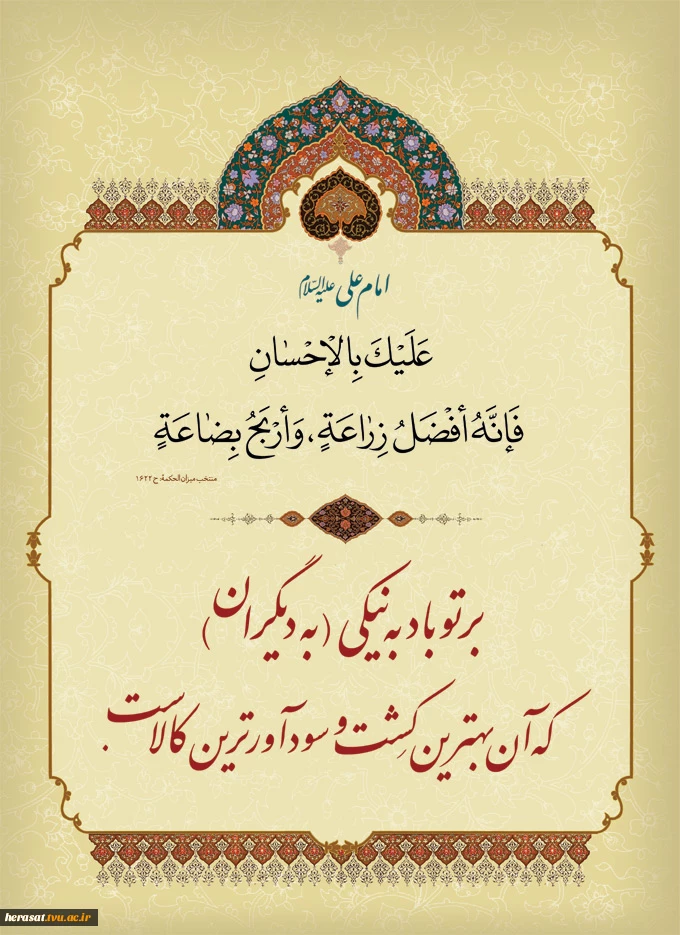 امام علی علیه السلام
عَلَيْكَ بِالْإحْسٰانِ
فَإنَّهُ أفْضَلُ زِرٰاعَةٍ، وَأرْبَحُ بِضٰاعَةٍ
منتخب میزان الحکمة: ح ۱۶۲۲
بر تو باد به نیکی (به دیگران)
که آن بهترین کِشت و سودآورترین کالاست.
herasat.tvu.ac.ir